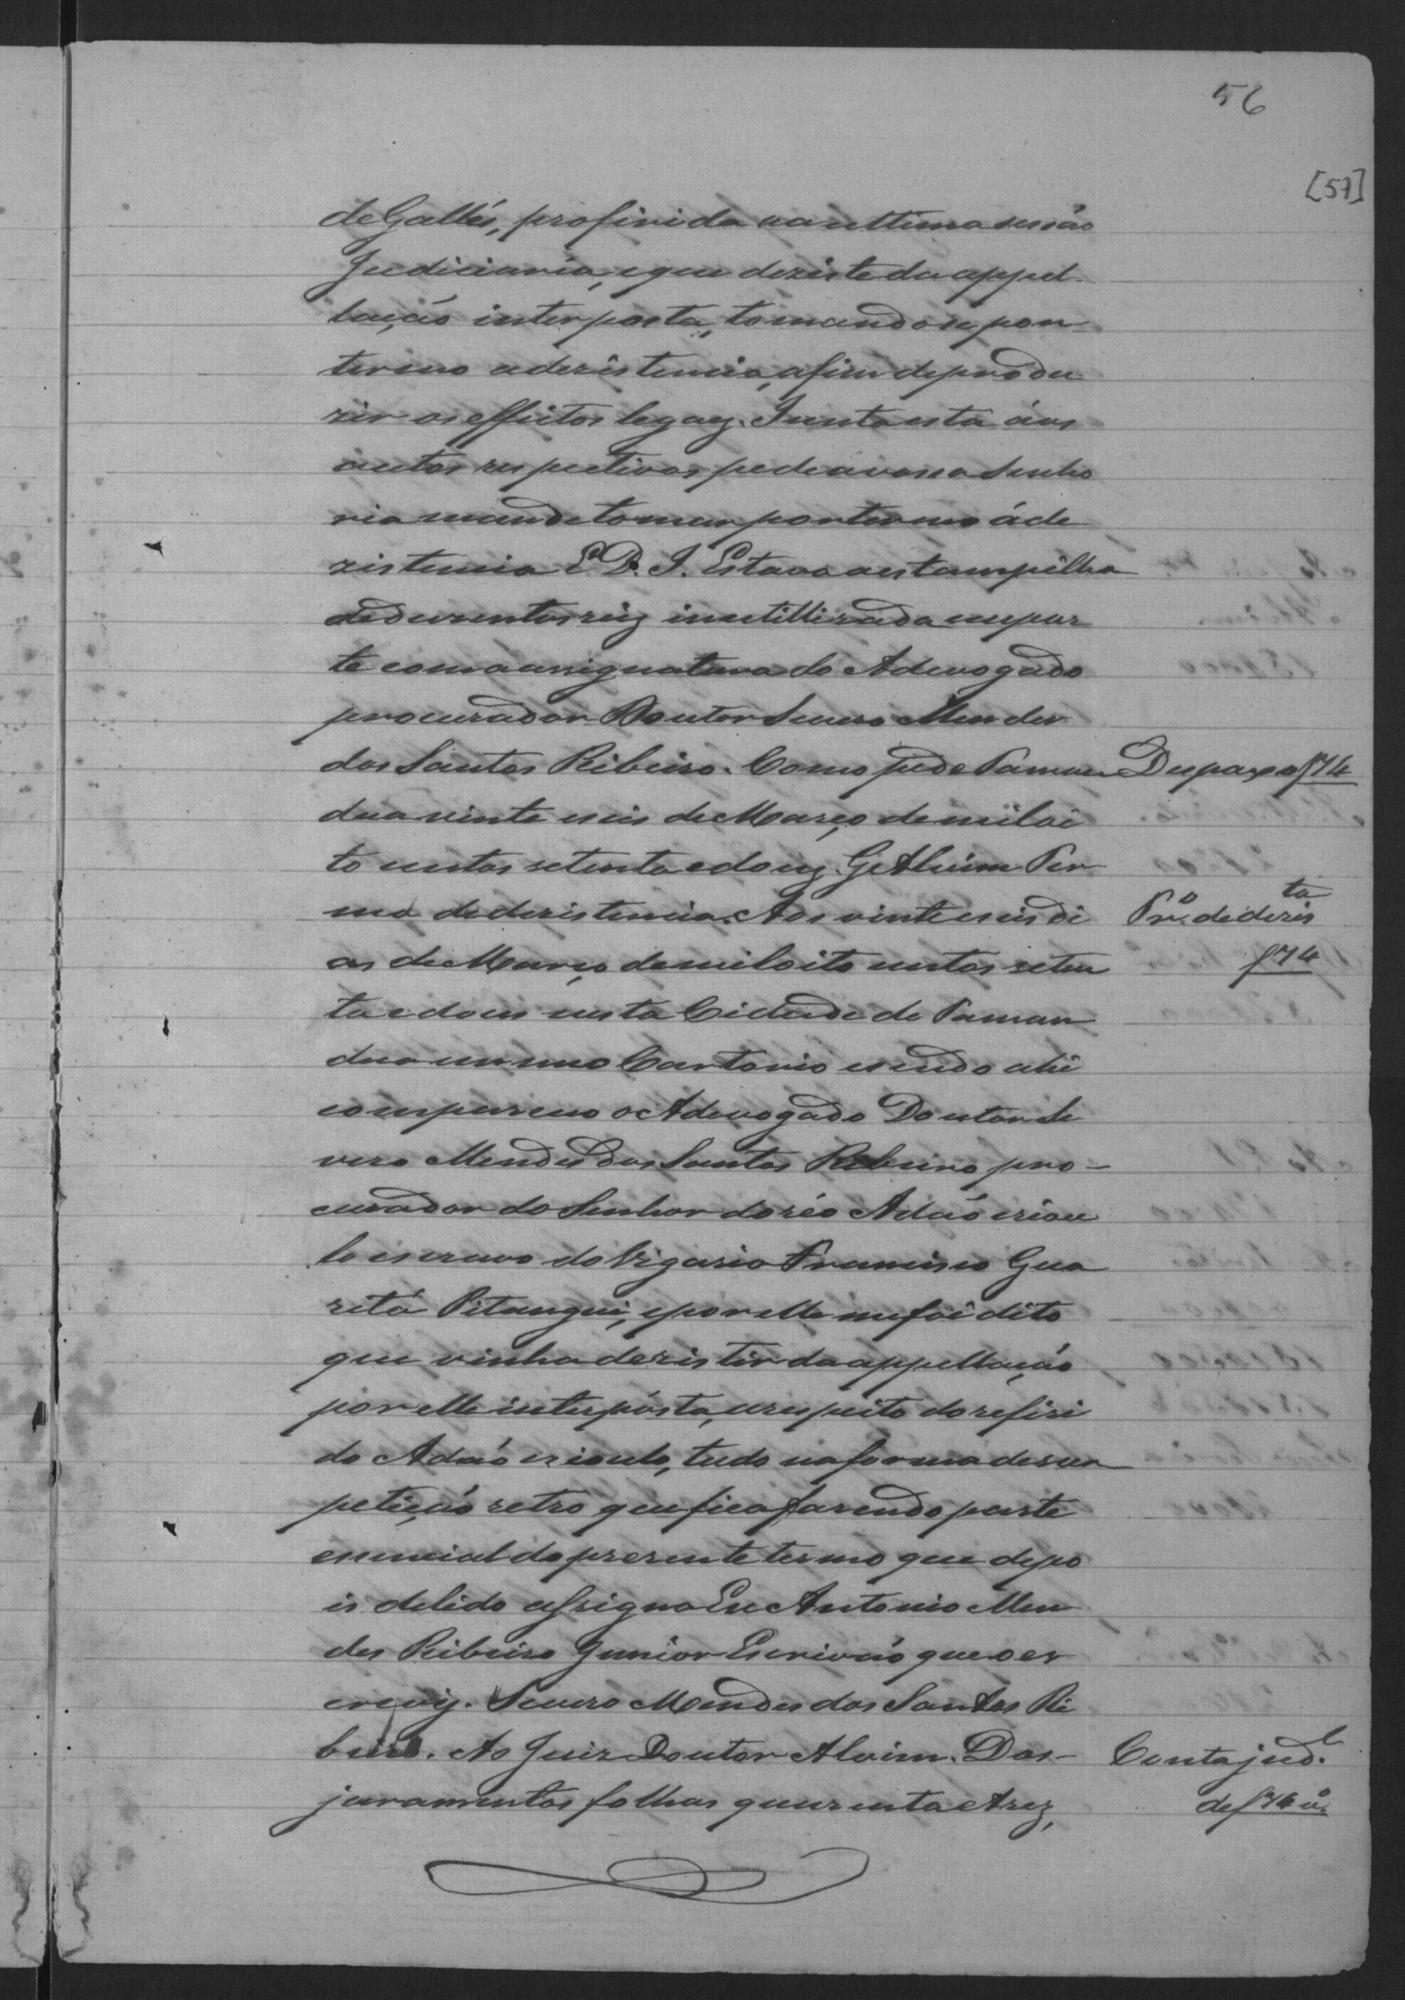 56
[57]
de Gallés, proferida na ultima sessão
Judiciaria, e que deziste da appel-
lação interposta, tomando se por
termo a dezistencia, afim de produ
zir os effeitos legaez. Junta esta áos
autos respectivos pede a vossa Senho
ria mande tomar por termo á de
zistencia E. R. J. Estava a estampilha
de duzentos reiz inutillizada em par
te com a assignatura do Advogado
procurador Doutor Severo Mendes
dos Santos Ribeiro. Como pede Taman Despaxo f 74
dua vinte e seis de Março de mil oi
to centos setenta e douz. G Alvim Ter
mo de dezistencia. Aos vinte e seis di Tr.º de dezis ta
as de Março de mil oito centos seten f 74
ta e dous nesta Cidade de Taman
dua em meo Cartorio e sendo ahi
compareceo o Advogado Doutor Se
vero Mendes dos Santos Ribeiro pro-
curador do Senhor do réo Adaó criou
lo escravo do Vigario Francisco Gua
ritá Pitangui, e por elle me foi dito
que vinha dezistir da appellação
por elle interpósta, a respeito do referi
do Adaó crioulo, tudo na forma de sua
petição retro que fica fazendo parte
essencial do prezente termo que depo
is de lido assigna Eu Antonio Men
des Ribeiro Junior Escrivaó que o es
creviz. Severo Mendes dos Santos Ri
beiro. Ao Juiz Doutor Alvim. Dos- Conta jud.l
juramentos folhas quarenta e trez, de f 74 v.